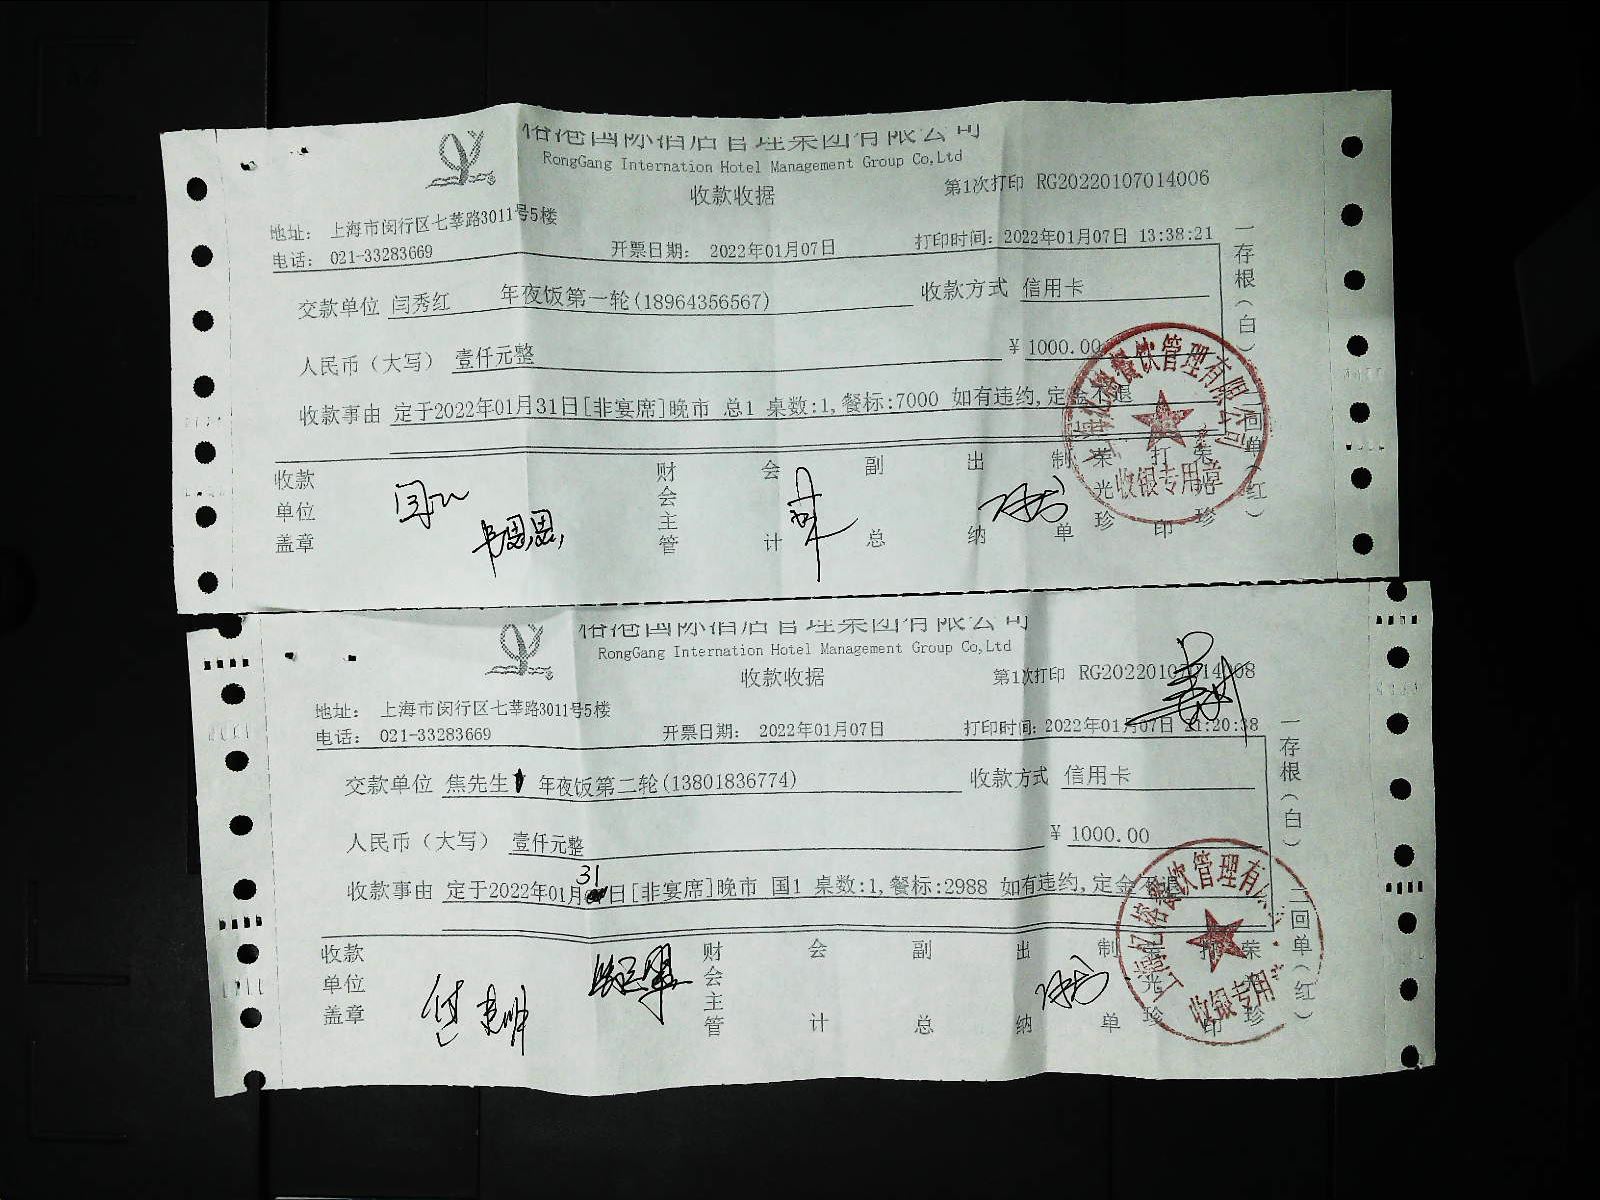 榕港国际酒店管理集团有限公司
RongGang Internation Hotel Management Group Co,Ltd
收款收据
第1次打印 RG20220107014006
地址: 上海市闵行区七莘路3011号5楼
电话: 021-33283669
开票日期: 2022年01月07日
打印时间: 2022年01月07日 13:38:21
交款单位 闫秀红 年夜饭第一轮(18964356567)
收款方式 信用卡
人民币（大写） 壹仟元整
¥ 1000.00
收款事由 定于2022年01月31日[非宴席]晚市 总1 桌数:1,餐标:7000 如有违约,定金不退
收款单位盖章
财会主管
会计
副总
出纳
制单
荣光珍
打印
荣光珍
一存根(白)
二回单(红)
餐饮管理有限公司
收银专用章
榕港国际酒店管理集团有限公司
RongGang Internation Hotel Management Group Co,Ltd
收款收据
第1次打印 RG20220107014008
地址: 上海市闵行区七莘路3011号5楼
电话: 021-33283669
开票日期: 2022年01月07日
打印时间: 2022年01月07日 21:20:38
交款单位 焦先生 年夜饭第二轮(13801836774)
收款方式 信用卡
人民币（大写） 壹仟元整
¥ 1000.00
收款事由 定于2022年01月31日[非宴席]晚市 国1 桌数:1,餐标:2988 如有违约,定金不退
收款单位盖章
财会主管
会计
副总
出纳
制单
荣光珍
打印
荣光珍
一存根(白)
二回单(红)
餐饮管理有
收银专用